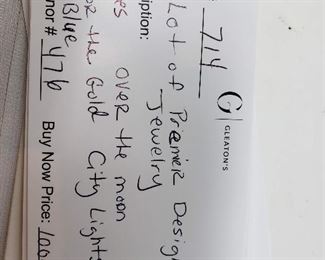 714
G
GLEATON'S
iption:
Lot of Premier Desig
Jewelry
es over the moon
or the Gold City Lights
Blue
nor # 476
Buy Now Price: 100